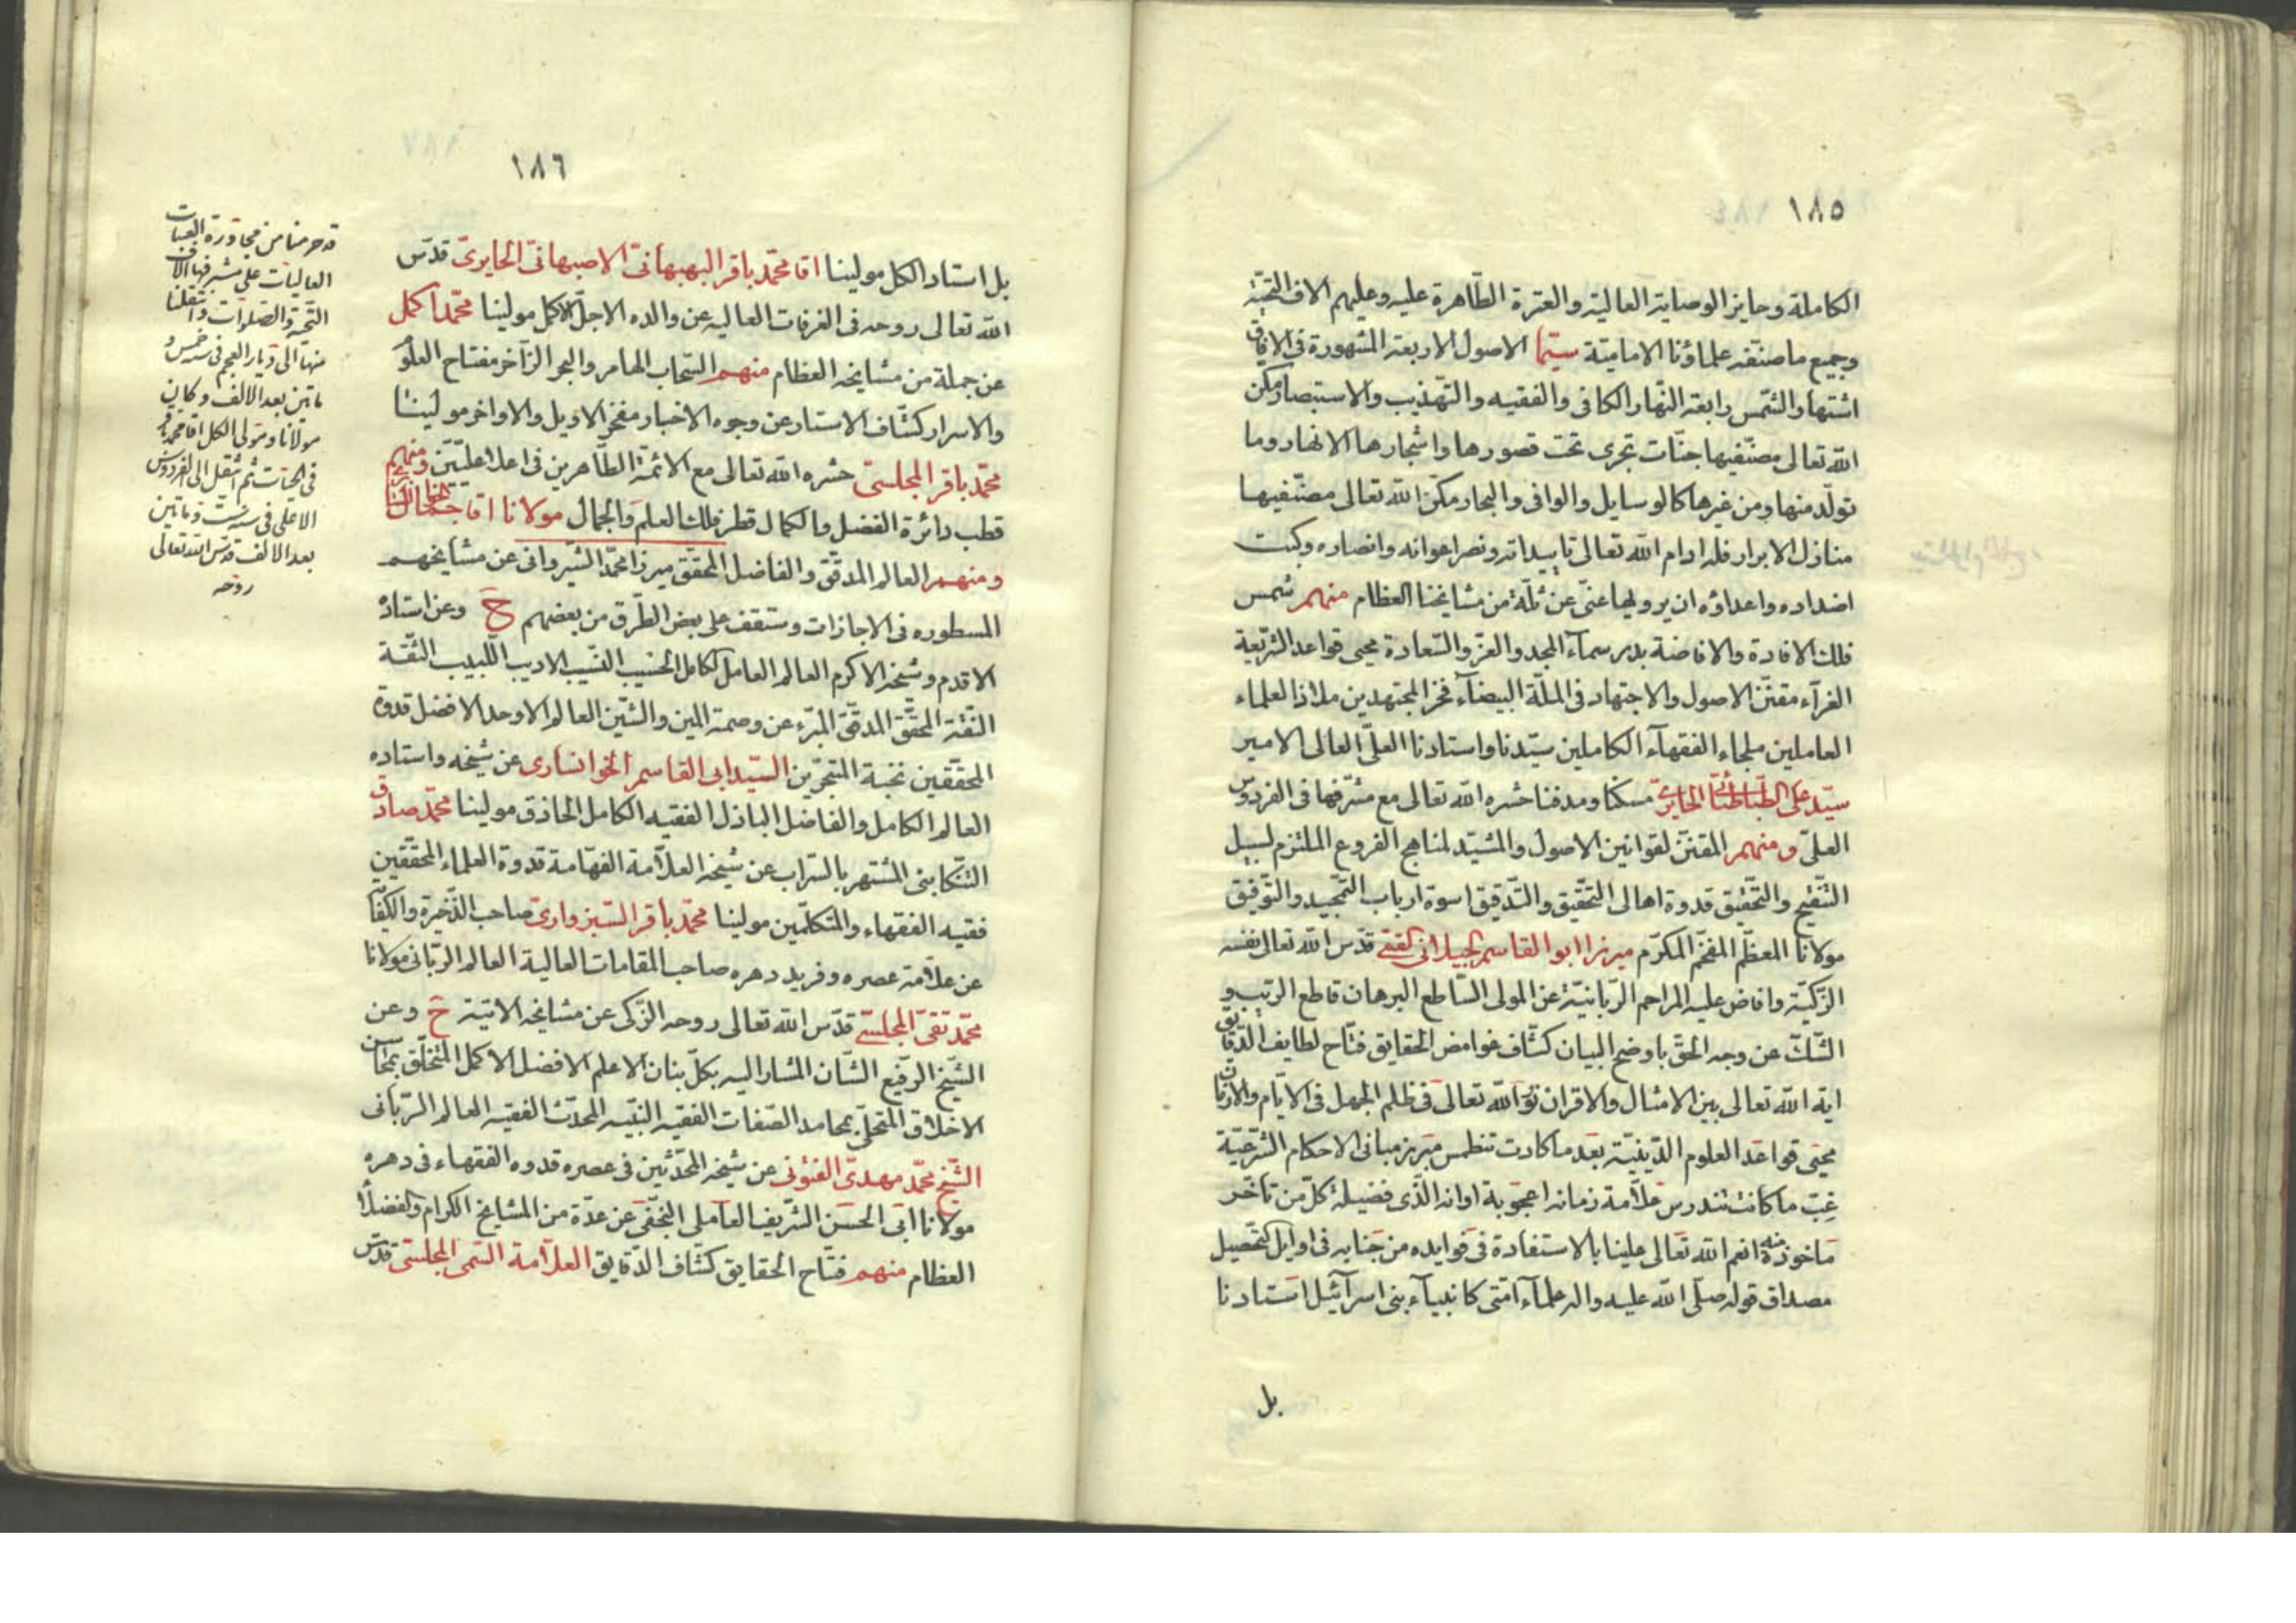 ١٨٥
الكاملة وحايز الوصاية العالية والعترة الطاهرة عليه وعليهم الاف التحية
وجميع ما صنفه علماؤنا الامامية سيما الاصول الاربعة المشهورة في الافاق
اشتهار الشمس رابعة النهار الكافي والفقيه والتهذيب والاستبصار مكن
الله تعالى مصنفيها جنات تجري تحت قصورها واشجارها الانهار وما
تولد منها ومن غيرها كالوسايل والوافي والبحار مكن الله تعالى مصنفيها
منازل الابرار فله ادام الله تعالى تاييداته ونصر اعوانه وانصاره وكبت
اضداده واعداؤه ان يرويها عني عن ثلة من مشايخنا العظام منهم شمس
فلك الافادة والافاضة بدر سماء المجد والعز والسعادة محيى قواعد الشريعة
الغرآء مقنن الاصول والاجتهاد في الملة البيضآء فخر المجتهدين ملاذ العلماء
العاملين ملجاء الفقهآء الكاملين سيدنا واستادنا العلي العالي الامير
سيد علي الطباطبائي الحايري مسكنا ومدفنا حشره الله تعالى مع مشرفها في الفردوس
العلي ومنهم المقنن لقوانين الاصول والمشيد لمناهج الفروع الملتزم لسبيل
التنقيح والتحقيق قدوة اهالي التحقيق والتدقيق اسوة ارباب التمجيد والتوفيق
مولانا المعظم المفخم المكرم ميرزا ابو القاسم الجيلاني القمي قدس الله تعالى نفسه
الزكية وافاض عليه المراحم الربانية عن المولى الساطع البرهان قاطع الريب و
الشك عن وجه الحق باوضح البيان كشاف غوامض الحقايق فتاح لطايف الدقايق
اية الله تعالى بين الامثال والاقران نور الله تعالى في ظلم الجهل في الايام والازمان
محيى قواعد العلوم الدينية بعد ما كادت تنطمس مبرز مباني الاحكام الشرعية
غب ما كانت تندرس علامة زمانه اعجوبة اوانه الذي فضيلة كل من تاخر
ماخوذة منه انعم الله تعالى علينا بالاستفادة في فوايده من جنابه في اوايل التحصيل
مصداق قوله صلى الله عليه واله علمآء امتي كانبيآء بني اسرآئيل استادنا
بل
١٨٦
بل استاد الكل مولينا اقا محمد باقر البهبهاني الاصبهاني الحايري قدس
الله تعالى روحه في الغرفات العاليه عن والده الاجل الاكمل مولينا محمد اكمل
عن جملة من مشايخه العظام منهم السحاب الهامر والبحر الزآخر مفتاح العلوم
والاسرار كشاف الاستار عن وجوه الاخبار مفخر الاوايل والاواخر مولينا
محمد باقر المجلسي حشره الله تعالى مع الائمة الطاهرين في اعلا عليين ومنهم
قطب دائرة الفضل والكمال قطر فلك العلم والجمال مولانا اقا جمال
ومنهم العالم المدقق والفاضل المحقق ميرزا محمد الشيرواني عن مشايخهم
المسطوره في الاجازات وستقف على بعض الطرق من بعضهم ح وعن استاده
الاقدم وشيخه الاكرم العالم العامل الكامل الحسيب النسيب الاديب اللبيب الثقة
النقة المحقق المدقق المبرء عن وصمة المين والشين العالم الاوحد الافضل قدوة
المحققين نخبة المتبحرين السيد ابي القاسم الخوانساري عن شيخه واستاده
العالم الكامل والفاضل الباذل الفقيه الكامل الحاذق مولينا محمد صادق
التنكابني المشتهر بالسراب عن شيخه العلامة الفهامة قدوة العلماء المحققين
فقيه الفقهاء والمتكلمين مولينا محمد باقر السبزواري صاحب الذخيرة والكفاية
عن علامة عصره وفريد دهره صاحب المقامات العالية العالم الرباني مولانا
محمد تقي المجلسي قدس الله تعالى روحه الزكي عن مشايخه الاتية ح وعن
الشيخ الرفيع الشان المشار اليه بكل بنان الاعلم الافضل الاكمل المتخلق بمحاسن
الاخلاق المتحلي بمحامد الصفات الفقيه النبيه المحدث الفقيه العالم الرباني
الشيخ محمد مهدي الفتوني عن شيخه المحدثين في عصره قدوه الفقهاء في دهره
مولانا ابي الحسن الشريف العاملي النجفي عن عدة من المشايخ الكرام والفضلاء
العظام منهم فتاح الحقايق كشاف الدقايق العلامة السمي المجلسي قدس
قد حرمنا من مجاورة العتبات
العاليات على مشرفها الاف
التحية والصلوات وانتقلنا
منها الى ديار العجم في سنه خمس و
ماتين بعد الالف وكان
مولانا ومولى الكل اقا محمد باقر
في الحيات ثم انتقل الى الفردوس
الاعلى في سنه ست وماتين
بعد الالف قدس الله تعالى
روحه